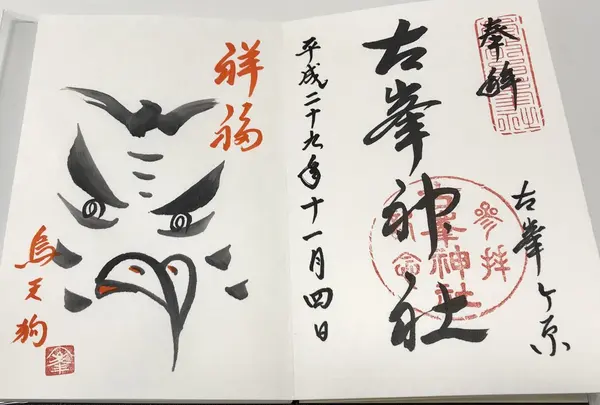 奉拝
古峯ヶ原
古峯神社
参拝
古峯神社
記念
平成二十九年十一月四日
祥福
烏天狗